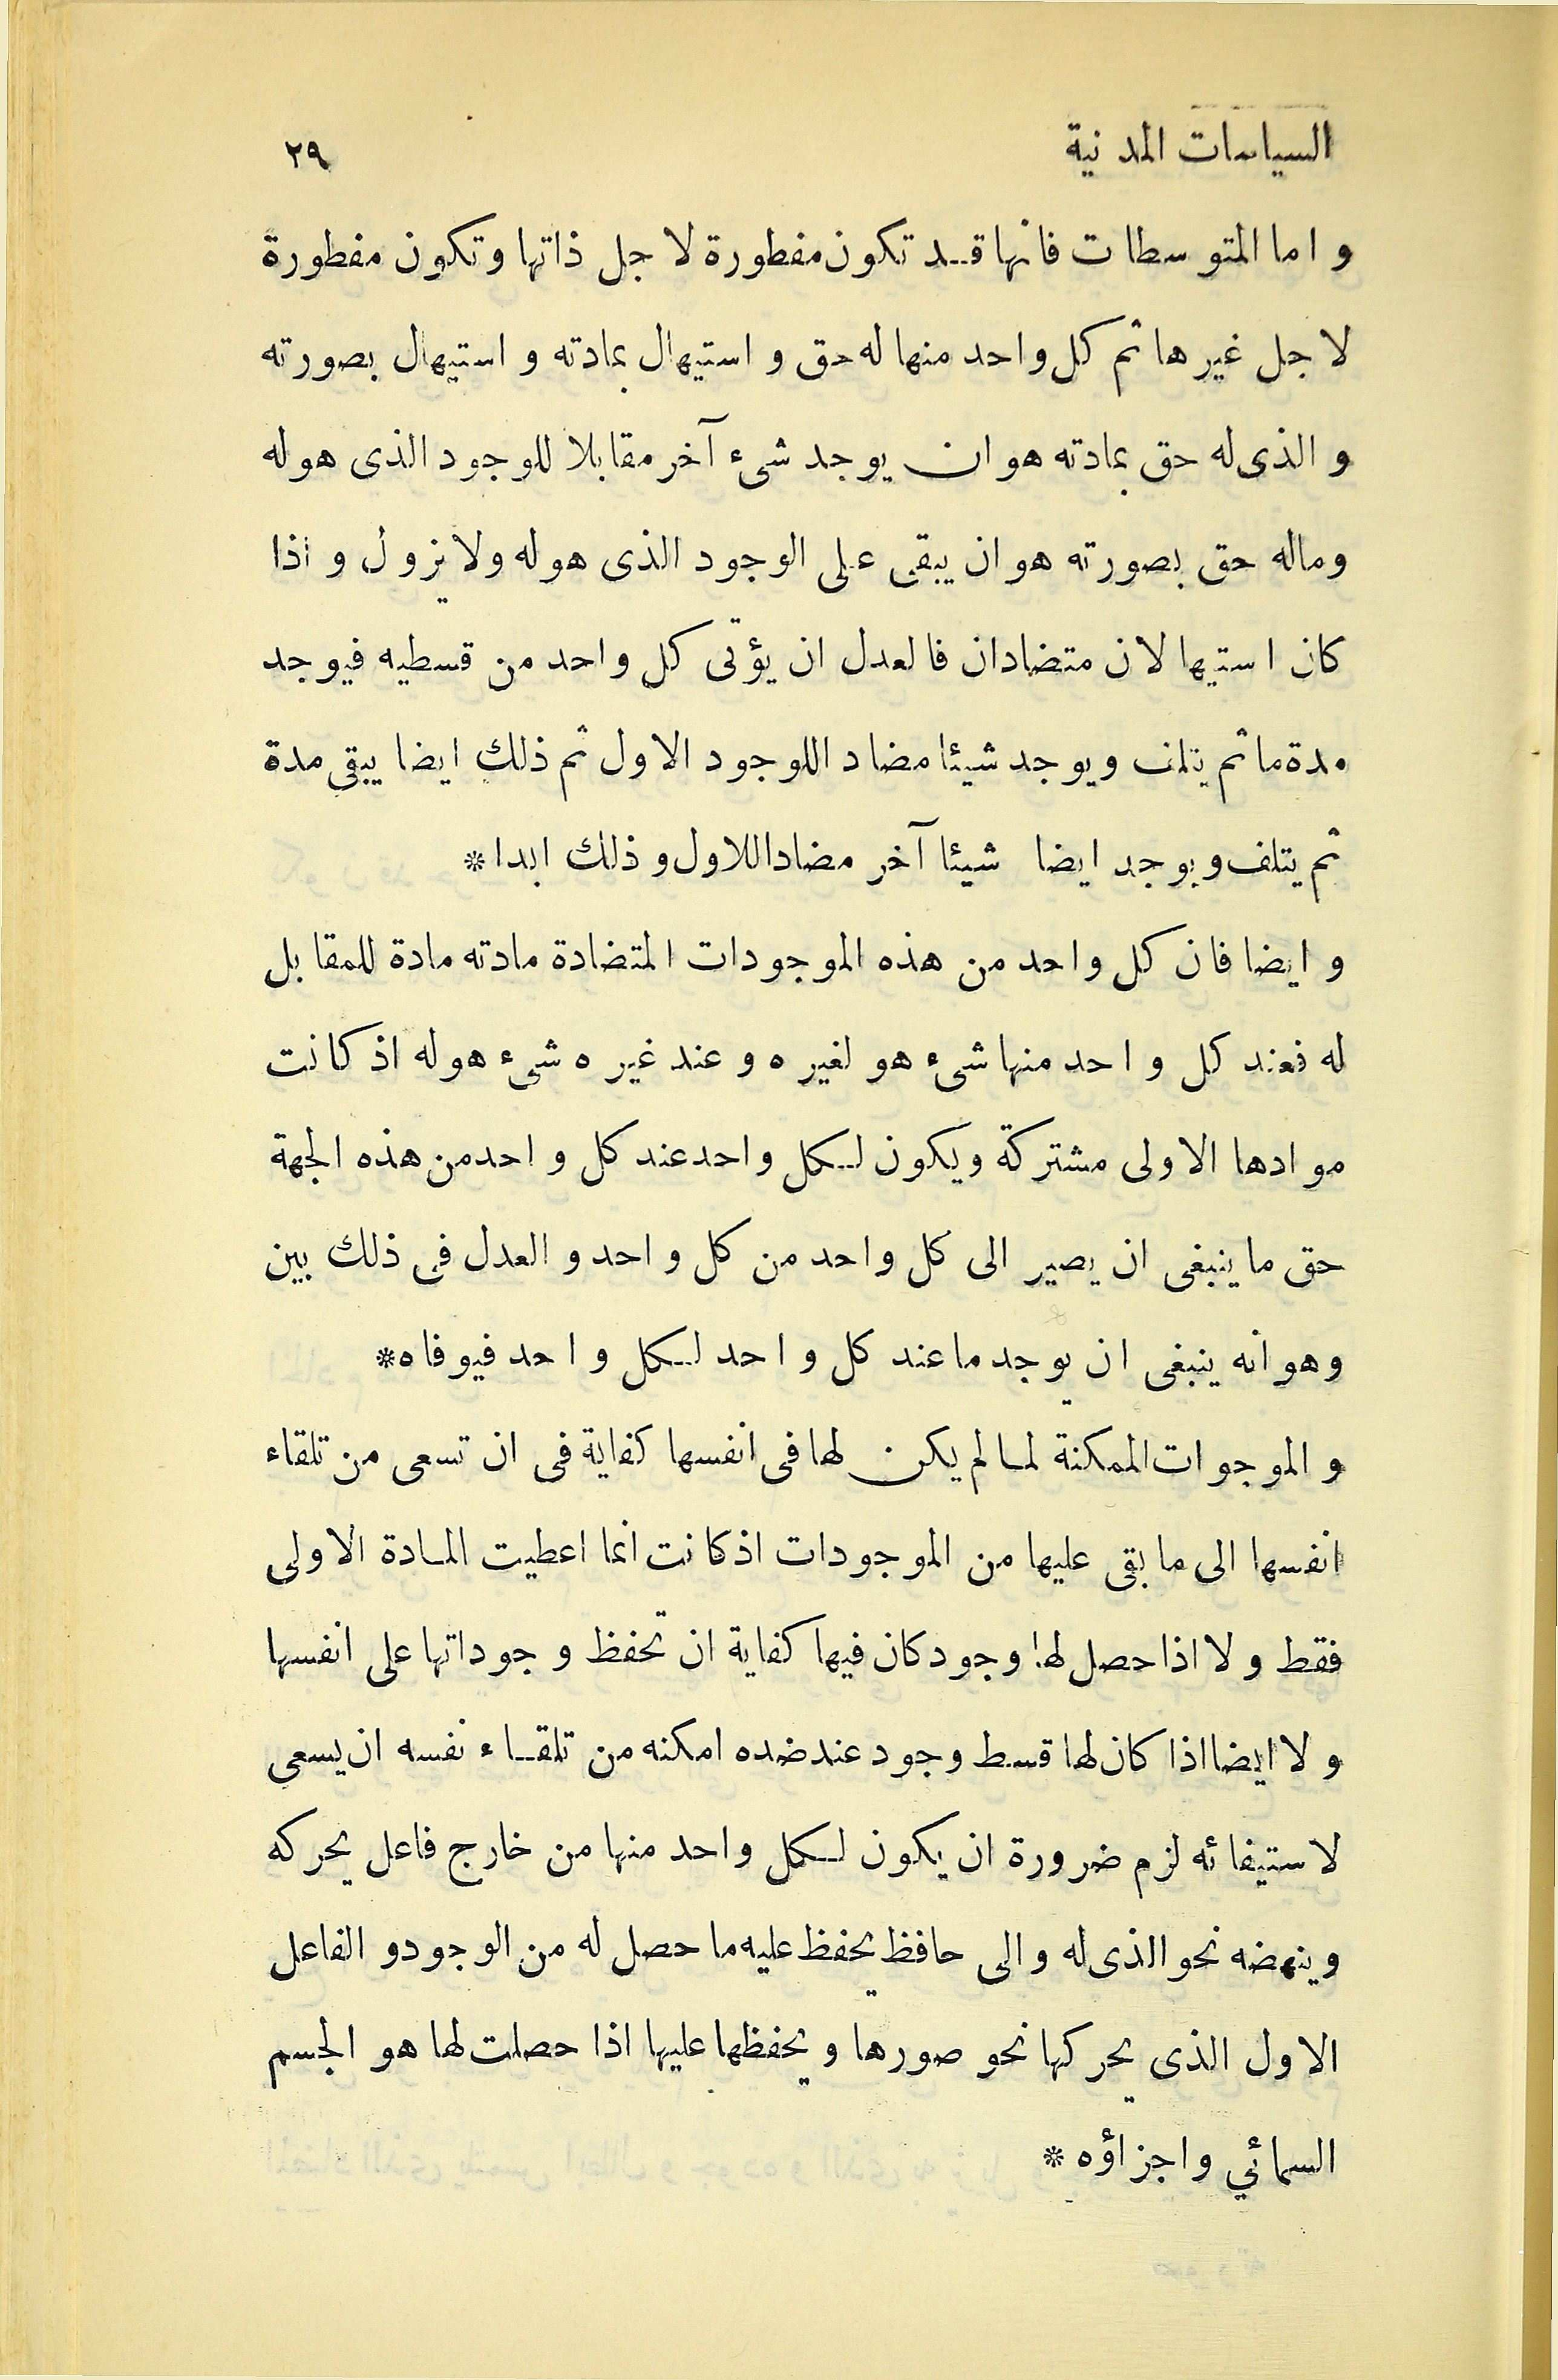 السياسات المدنية ٢٩
و اما المتوسطات فانها قد تكون مفطورة لاجل ذاتها وتكون مفطورة
لاجل غيرها ثم كل واحد منها له حق و استيهال بمادته و استيهال بصورته
و الذى له حق بمادته هو ان يوجد شىء آخر مقابلا للوجود الذى هو له
وماله حق بصورته هو ان يبقى على الوجود الذى هو له ولا يزول و اذا
كان استيهالان متضادان فالعدل ان يؤتى كل واحد من قسطيه فيوجد
مدة ما ثم يتلف ويوجد شيئا مضادا للوجود الاول ثم ذلك ايضا يبقى مدة
ثم يتلف ويوجد ايضا شيئا آخر مضادا للاول و ذلك ابدا *
و ايضا فان كل واحد من هذه الموجودات المتضادة مادته مادة للمقابل
له فعند كل واحد منها شىء هو لغيره و عند غيره شىء هو له اذ كانت
موادها الاولى مشتركة ويكون لكل واحد عند كل واحد من هذه الجهة
حق ما ينبغى ان يصير الى كل واحد من كل واحد و العدل فى ذلك بين
وهو انه ينبغى ان يوجد ما عند كل واحد لكل واحد فيوفاه *
و الموجوات الممكنة لما لم يكن لها فى انفسها كفاية فى ان تسعى من تلقاء
انفسها الى ما بقى عليها من الموجودات اذ كانت انما اعطيت المادة الاولى
فقط و لا اذا حصل لها وجود كان فيها كفاية ان تحفظ وجوداتها على انفسها
و لا ايضا اذا كان لها قسط وجود عند ضده امكنه من تلقاء نفسه ان يسعى
لاستيفائه لزم ضرورة ان يكون لكل واحد منها من خارج فاعل يحركه
وينهضه نحو الذى له والى حافظ يحفظ عليه ما حصل له من الوجود و الفاعل
الاول الذى يحركها نحو صورها و يحفظها عليها اذا حصلت لها هو الجسم
السمائي واجزاؤه *